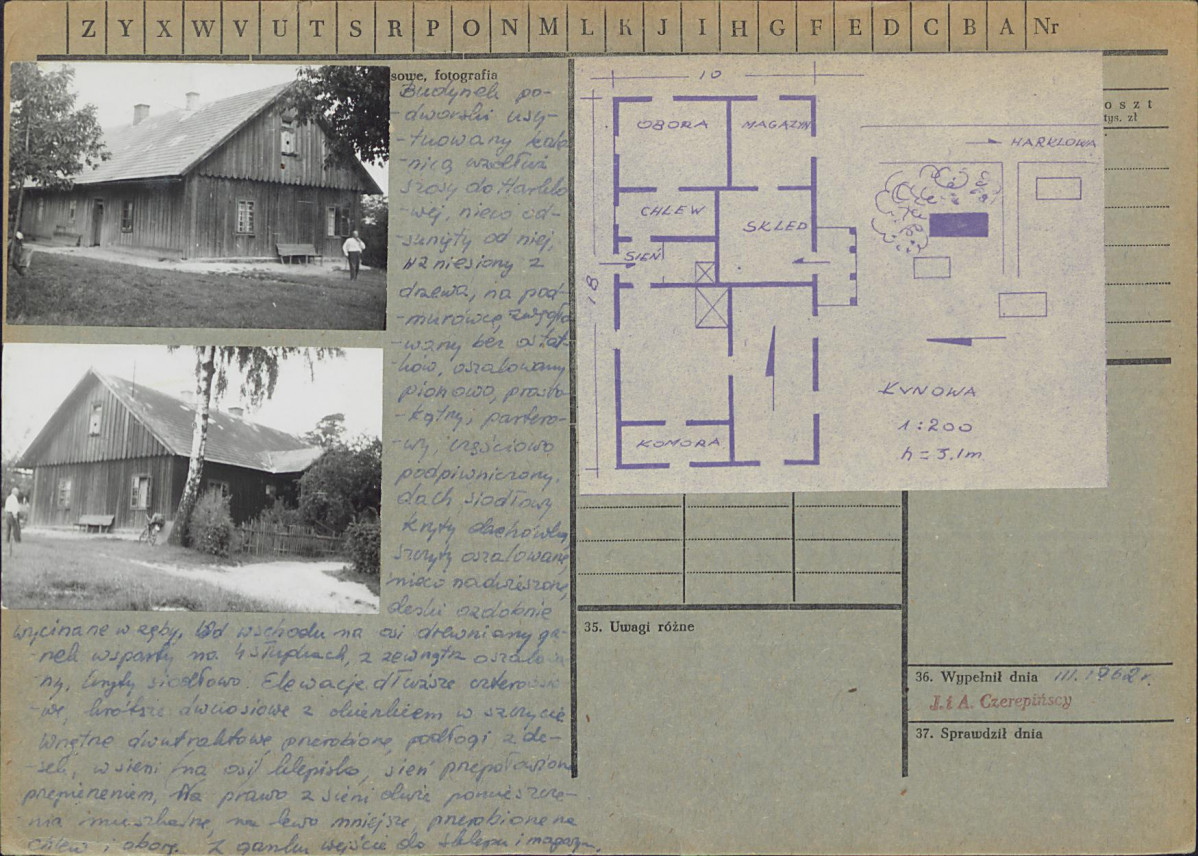 Z Y X W V U T S R P O N M L K J I H G F E D C B A Nr
sowe, fotografia
Budynek po-
-dworski usy-
-tuowany kale-
-nicą wzdłuż
szosy do Harklo
-wej, nieco od-
-sunięty od niej,
Wzniesiony z
drzewa, na pod-
-murówce, zwęgło
-wany bez ostat-
ków, oszalowany
pionowo, prosto-
-kątny, partero-
-wy, częściowo
podpiwniczony.
dach siodłowy
kryty dachówką,
szczyty oszalowane,
nieco nadwieszone,
deski ozdobnie
wycinane w zęby. Od wschodu na osi drewniany ga-
-nek wsparty na 4 słupkach, z zewnątrz oszalowa-
-ny, kryty siodłowo. Elewacje dłuższe czteroosio-
-we, krótsze dwuosiowe z okienkiem w szczycie
Wnętrze dwutraktowe, przerobione, podłogi z de-
-sek, w sieni /na osi/ klepisko, sień przepołowiona
przepierzeniem, Na prawo z sieni dwa pomieszcze-
-nia mieszkalne, na lewo mniejsze, przerobione na
chlew i oborę. Z ganku wejście do sklepu i magazyn.
10
18
OBORA
MAGAZYN
CHLEW
SKLEP
SIEŃ
KOMORA
HARKLOWA
KUNOWA
1:200
h = 3,1m
oszt
tys. zł
35. Uwagi różne
36. Wypełnił dnia III. 1962 r.
J. i A. Czerepińscy
37. Sprawdził dnia